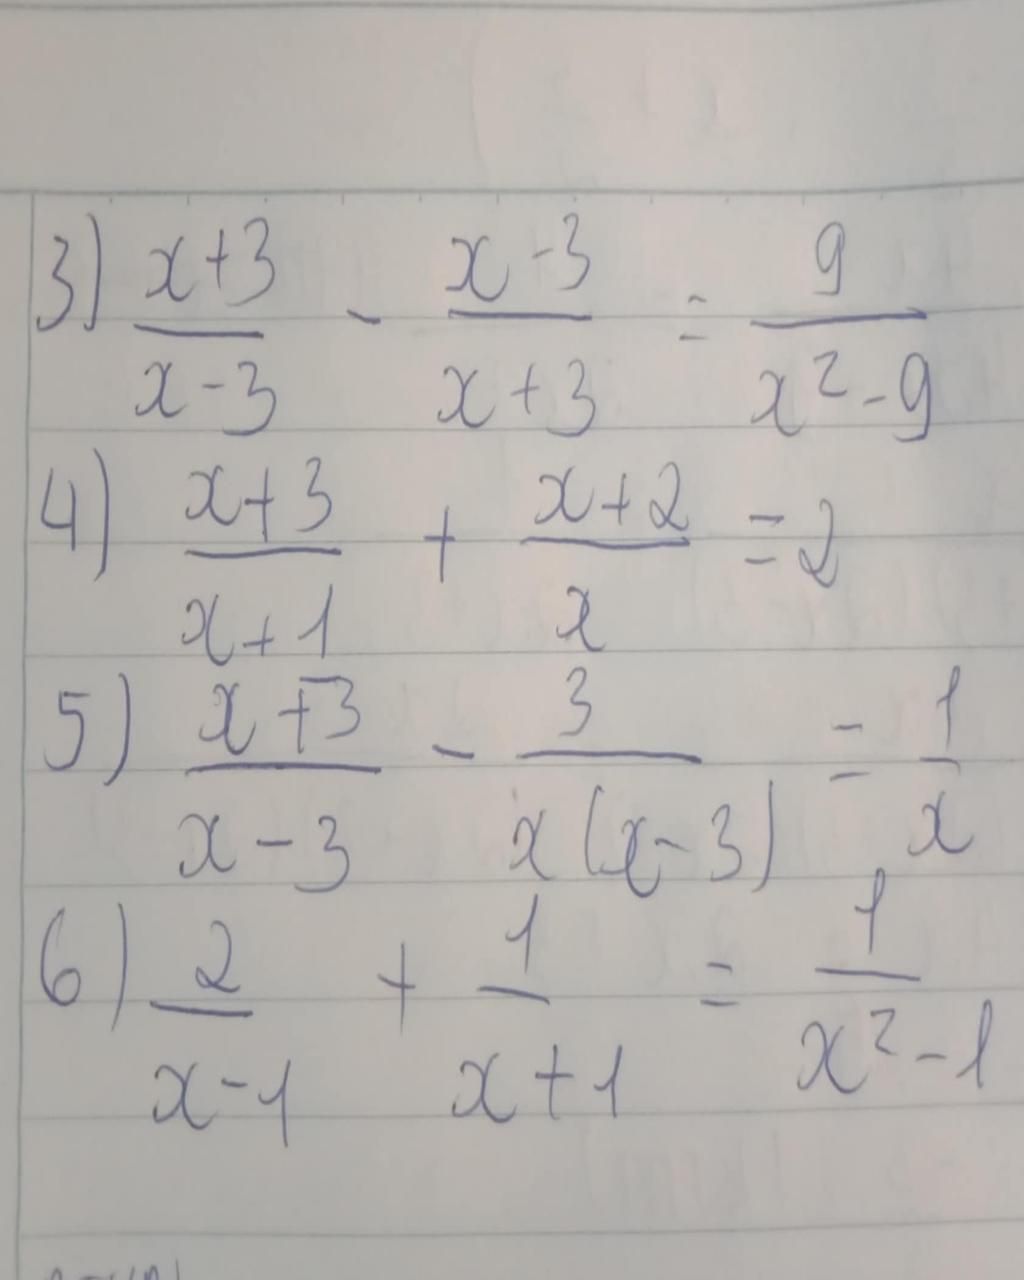 3) (x+3)/(x-3) - (x-3)/(x+3) = 9/(x²-9)
4) (x+3)/(x+1) + (x+2)/x = 2
5) (x+3)/(x-3) - 3/(x(x-3)) = 1/x
6) 2/(x-1) + 1/(x+1) = 1/(x²-1)